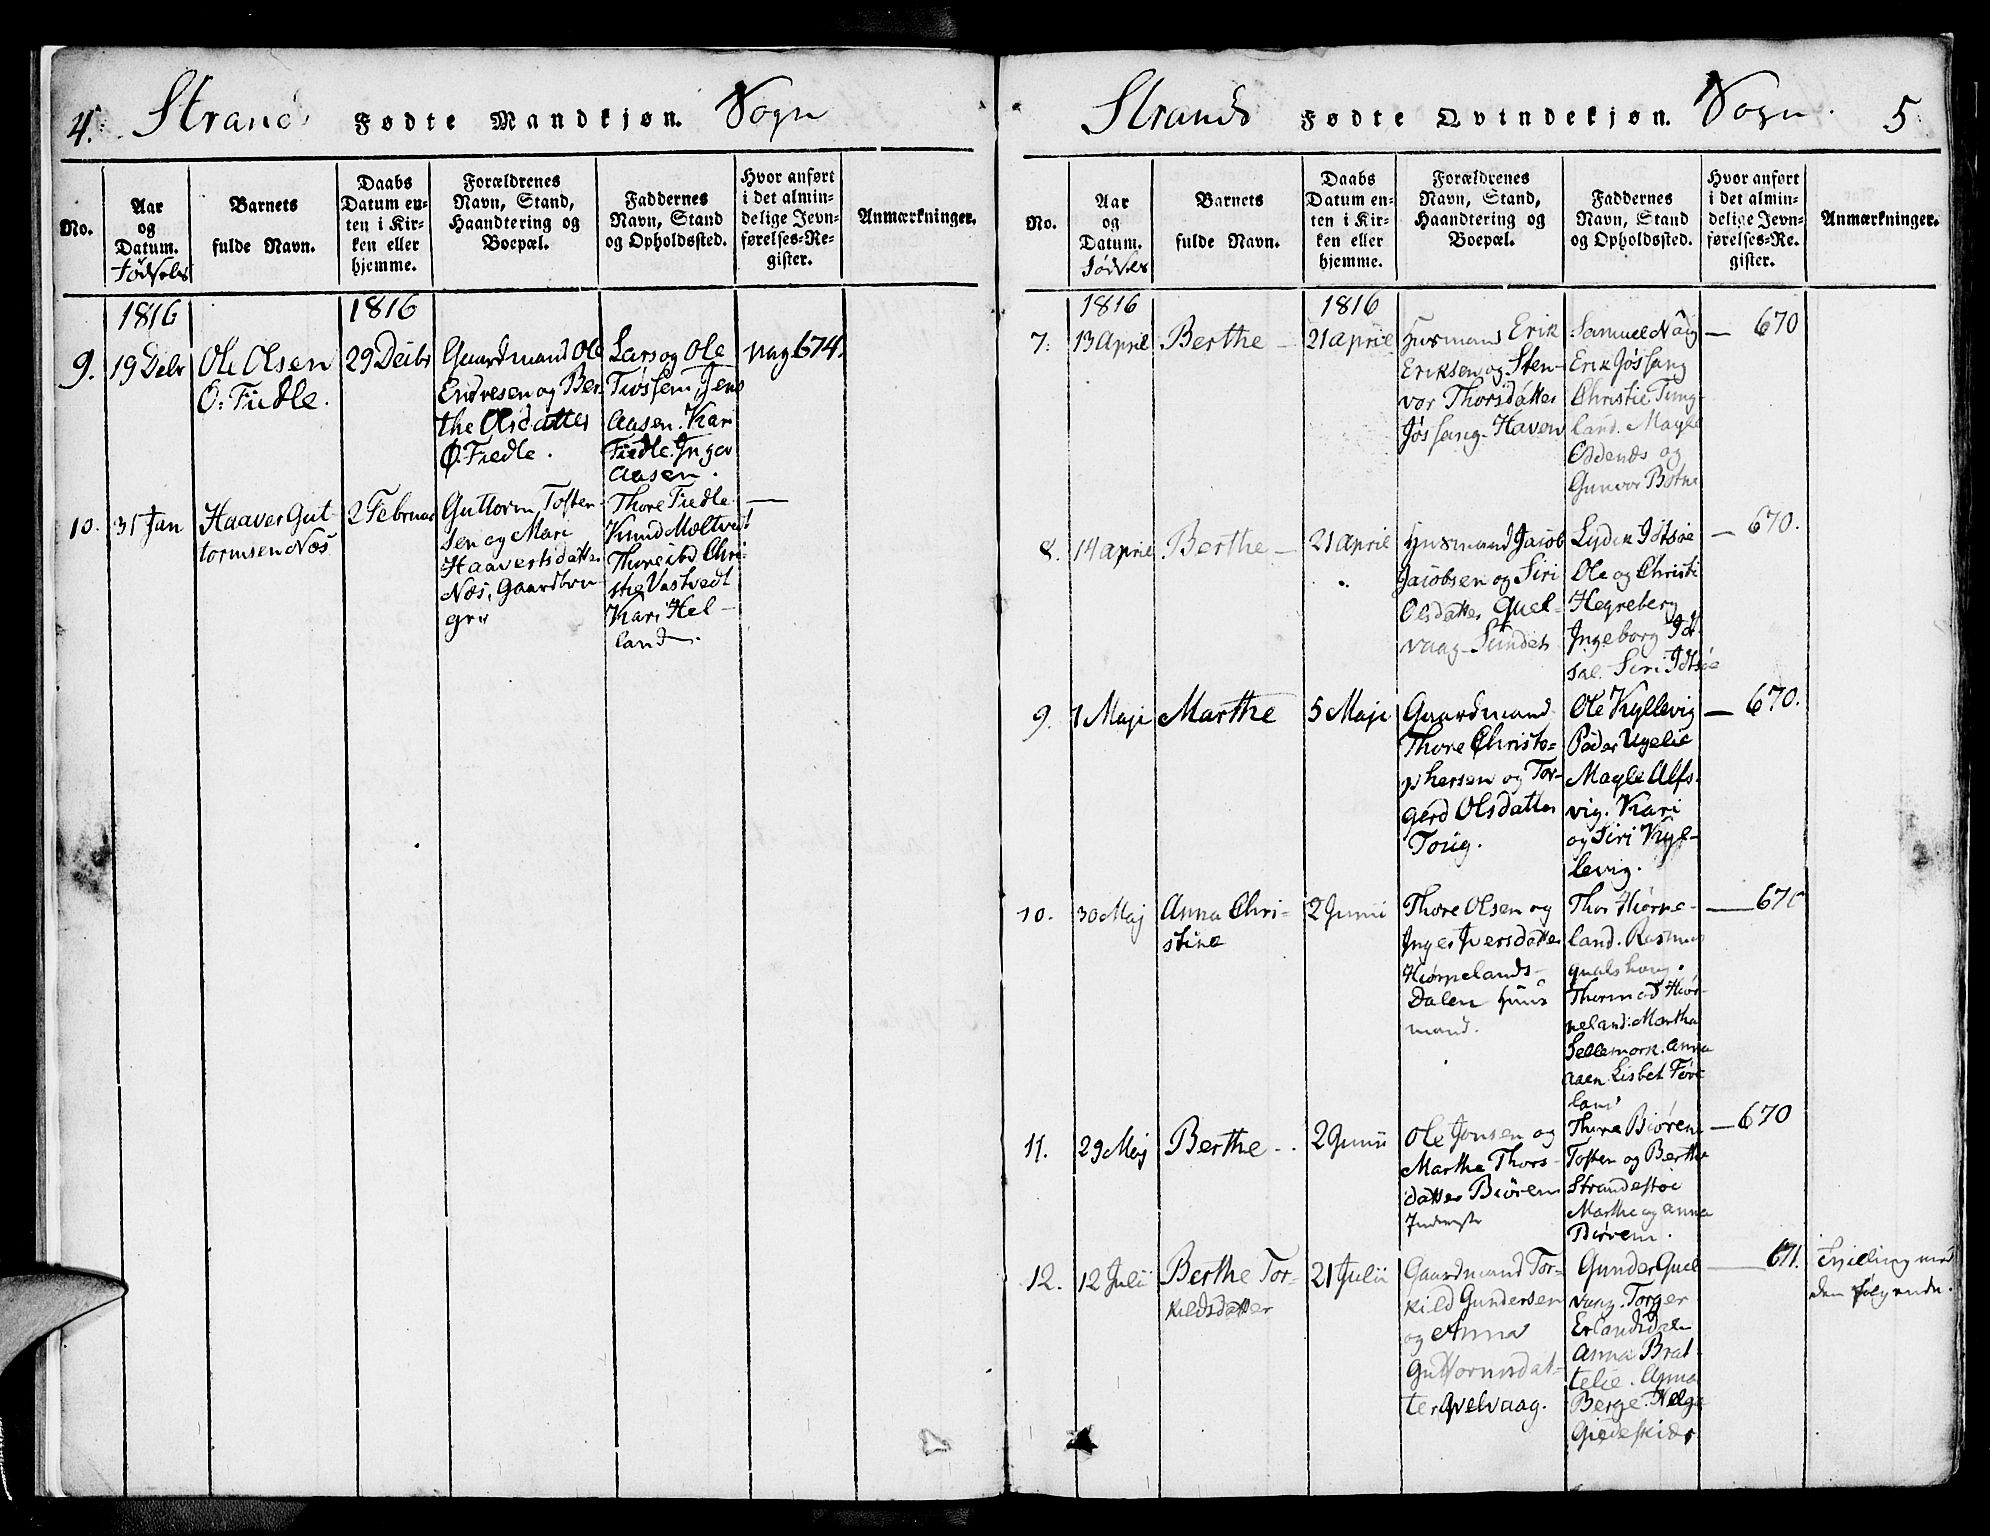 4. Strand Fødte Mandkjøn. Sogn
No.
Aar
og
Datum.
Fødsels
Barnets
fulde Navn.
Daabs
Datum en-
ten i Kir-
ken eller
hjemme.
Forældrenes
Navn, Stand,
Haandtering og
Boepæl.
Faddernes
Navn, Stand
og Opholdssted.
Hvor anført
i det almin-
delige Jevn-
førelses-Re-
gister.
Anmærkninger.
1816
1816
9.
19 Debr
Ole Olsen
Ø: Fiedle.
29 Deibr
Gaardmand Ole
Endresen og Ber
the Olsdatter
Ø. Fiedle.
Lars og Ole
Tiøssem, Jens
Aasen. Kari
Fiedle. Inger
Aasen.
pag 674.
10.
31 Jan
Haaver Gut
tormsen Næs
2 Februar
Guttorm Tosten
sen og Mari
Haaversdatter
Næs, Gaardbru
ger
Thore Fiedle
Knud Meltvedt
Thore og Chri-
sthe Vastvedt
Kari Hel-
land.
—
Strands Fødte Qvindekjøn. Sogn. 5
No.
Aar
og
Datum.
Fødsels
Barnets
fulde Navn.
Daabs
Datum en-
ten i Kir-
ken eller
hjemme.
Forældrenes
Navn, Stand,
Haandtering og
Boepæl.
Faddernes
Navn, Stand
og Opholdssted.
Hvor anført
i det almin-
delige Jevn-
førelses-Re-
gister.
Anmærkninger.
1816
1816
7.
13 April
Berthe —
21 April
Husmand Erik
Eriksen og Sten-
vor Thorsdatter
Jøssang-Haven
Samuel Någ
Erik Jøssang
Christie Tung-
land. Magle
Oddenæs og
Gunvor Botne
— 670
8.
14 April
Berthe —
21 April
Husmand Jacob
Jacobsen og Siri
Olsdatter Quel-
vaag-Sundet
Lyder Idtsøe
Ole og Christi
Hegreberg
Ingeborg Idt-
søe. Siri Idtsøe
— 670.
9.
1 Maji
Marthe
5 Maji
Gaardmand
Thore Christo-
phersen og Tor-
gerd Olsdatter
Toug.
Ole Kyllevig
Peder Ugelie
Magle Alfs-
vig. Kari
og Siri Kyl-
levig.
— 670.
10.
30 Maj
Anna Chri-
stine
2 Junii
Thore Olsen og
Inger Iversdatter
Hiørpelands-
Dalen Huus
mand.
Thor Hiørpe-
land. Rasmus
Thormod Hiør-
peland. Martha
Sellemork. Anna
Aaen. Lisbet Føre
land
— 670
11.
29 Maj
Berthe -.
2 Junii
Ole Jonsen og
Marthe Thors-
datter Biørem
Inderste
Thore Biørem
Tosten og Berthe
Strandestøe
Marthe og Anna
Biørem.
— 670
12.
12 Julii
Berthe Tor-
kildsdatter
21 Julii
Gaardmand Tor-
kild Gundersen
og Anna
Guttormsdat-
ter Qvelvaag.
Gunder Quel
vaag. Torger
Erlandsdale
Anna Brat-
telie. Anna
Berge. Helge
Giedeskide
— 671.
Tvilling med
den følgende.